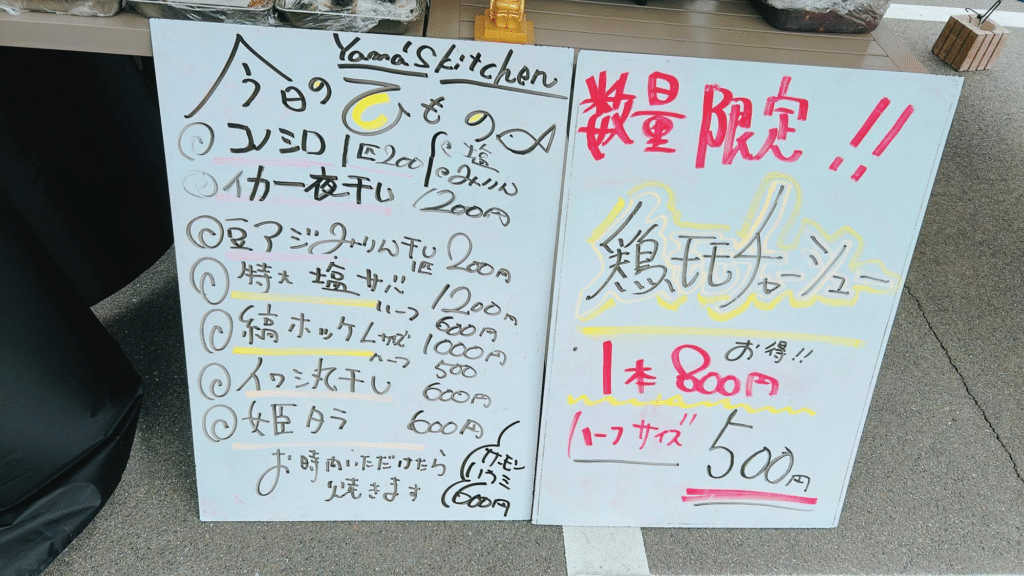 Yama's kitchen
今日の ひもの
コノシロ 1匹200 塩 みりん
イカ一夜干し 1200円
豆アジみりん干し 1匹 200円
特大 塩サバ 1200円
ハーフ 600円
縞ホッケ Lサイズ 1000円
ハーフ 500
イワシ丸干し 600円
姫タラ 600円
お時間いただけたら
焼きます
サーモン
ハラミ
600円
数量限定!!
鶏モモチャーシュー
お得!!
1本 800円
ハーフサイズ 500円